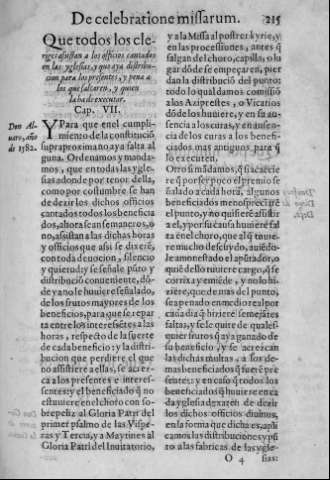 De celebratione missarum. 215
Que todos los cle-
rigos assistan a los officios cantados
en las yglesias, y que aya distribu-
cion para los presentes, y pena a
los que faltaren, y quien
la ha de executar.
Cap. VII.
Don Al-
uaro, año
de 1582.
Y Para que en el cumpli-
miento de la constitució
supra proxima no aya falta al
guna. Ordenamos y manda-
mos, que en todas las ygle-
sias adonde por tenor della,
como por costumbre se han
de dezir los dichos officios
cantados todos los beneficia
dos, ahora sean semaneros, o
no, assistan a las dichas horas
y officios que assi se dixerē,
con toda deuocion, silencio
y quietud: y se señale púto y
distribució conueniente, dō-
de ya no le huuiere señalado,
de los frutos mayores de los
beneficios, para que se repar
ta entre los interessētes a las
horas, respecto de la suerte
de cada beneficio: y la distri-
bucion que perdiere el que
no assistiere a ellas, se acrez-
ca a los presentes e interes-
sentes: y el beneficiado q̄ no
estuuiere en el choro con so-
brepeliz al Gloria Patri del
primer psalmo de las Vispe-
ras y Tercia, y a Maytines al
Gloria Patri del Inuitatorio,
y a la Missa al postrer kyrie, y
en las processiones, antes q̄
salgan del choro, capilla, o lu
gar dōde se empeçaren, pier
dan la distribució del punto:
todo lo qual damos comissió
a los Aziprestes, o Vicarios
dōde los huuiere, y en su au-
sencia a los curas, y en ausen-
cia de los curas a los benefi-
ciados mas antiguos para q̄
lo executen.
Otro si mādamos, q̄ si acaecie
re q̄ por ser poco el premio se
ñalado a cada hora, algunos
beneficiados menospreciarē
el punto, y no quisierē assistir
a el, y por su causa huuiere fal
ta en el choro, que al q̄ tuuie
re mucho descuydo, auiēdo-
le amonestado el apūtador, o
quiē dello tuuiere cargo, q̄ se
corrija y emiēde, y no lo hi-
ziere, que de mas del punto,
sea penado en medio real por
cada dia q̄ hiziere semejātes
faltas, y se le quite de quales-
quier frutos q̄ aya ganado de
su beneficio, y se acrezcan
las dichas multas, a los de-
mas beneficiados q̄ fuerē pre
sentes: y en caso q̄ todos los
beneficiados q̄ huuiere en ca
da yglesia dexarē de dezir
los dichos officios diuinos,
en la forma que dicha es, apli
camos las distribuciones y pū
to a las fabricas de las ygle-
O 4 sias: